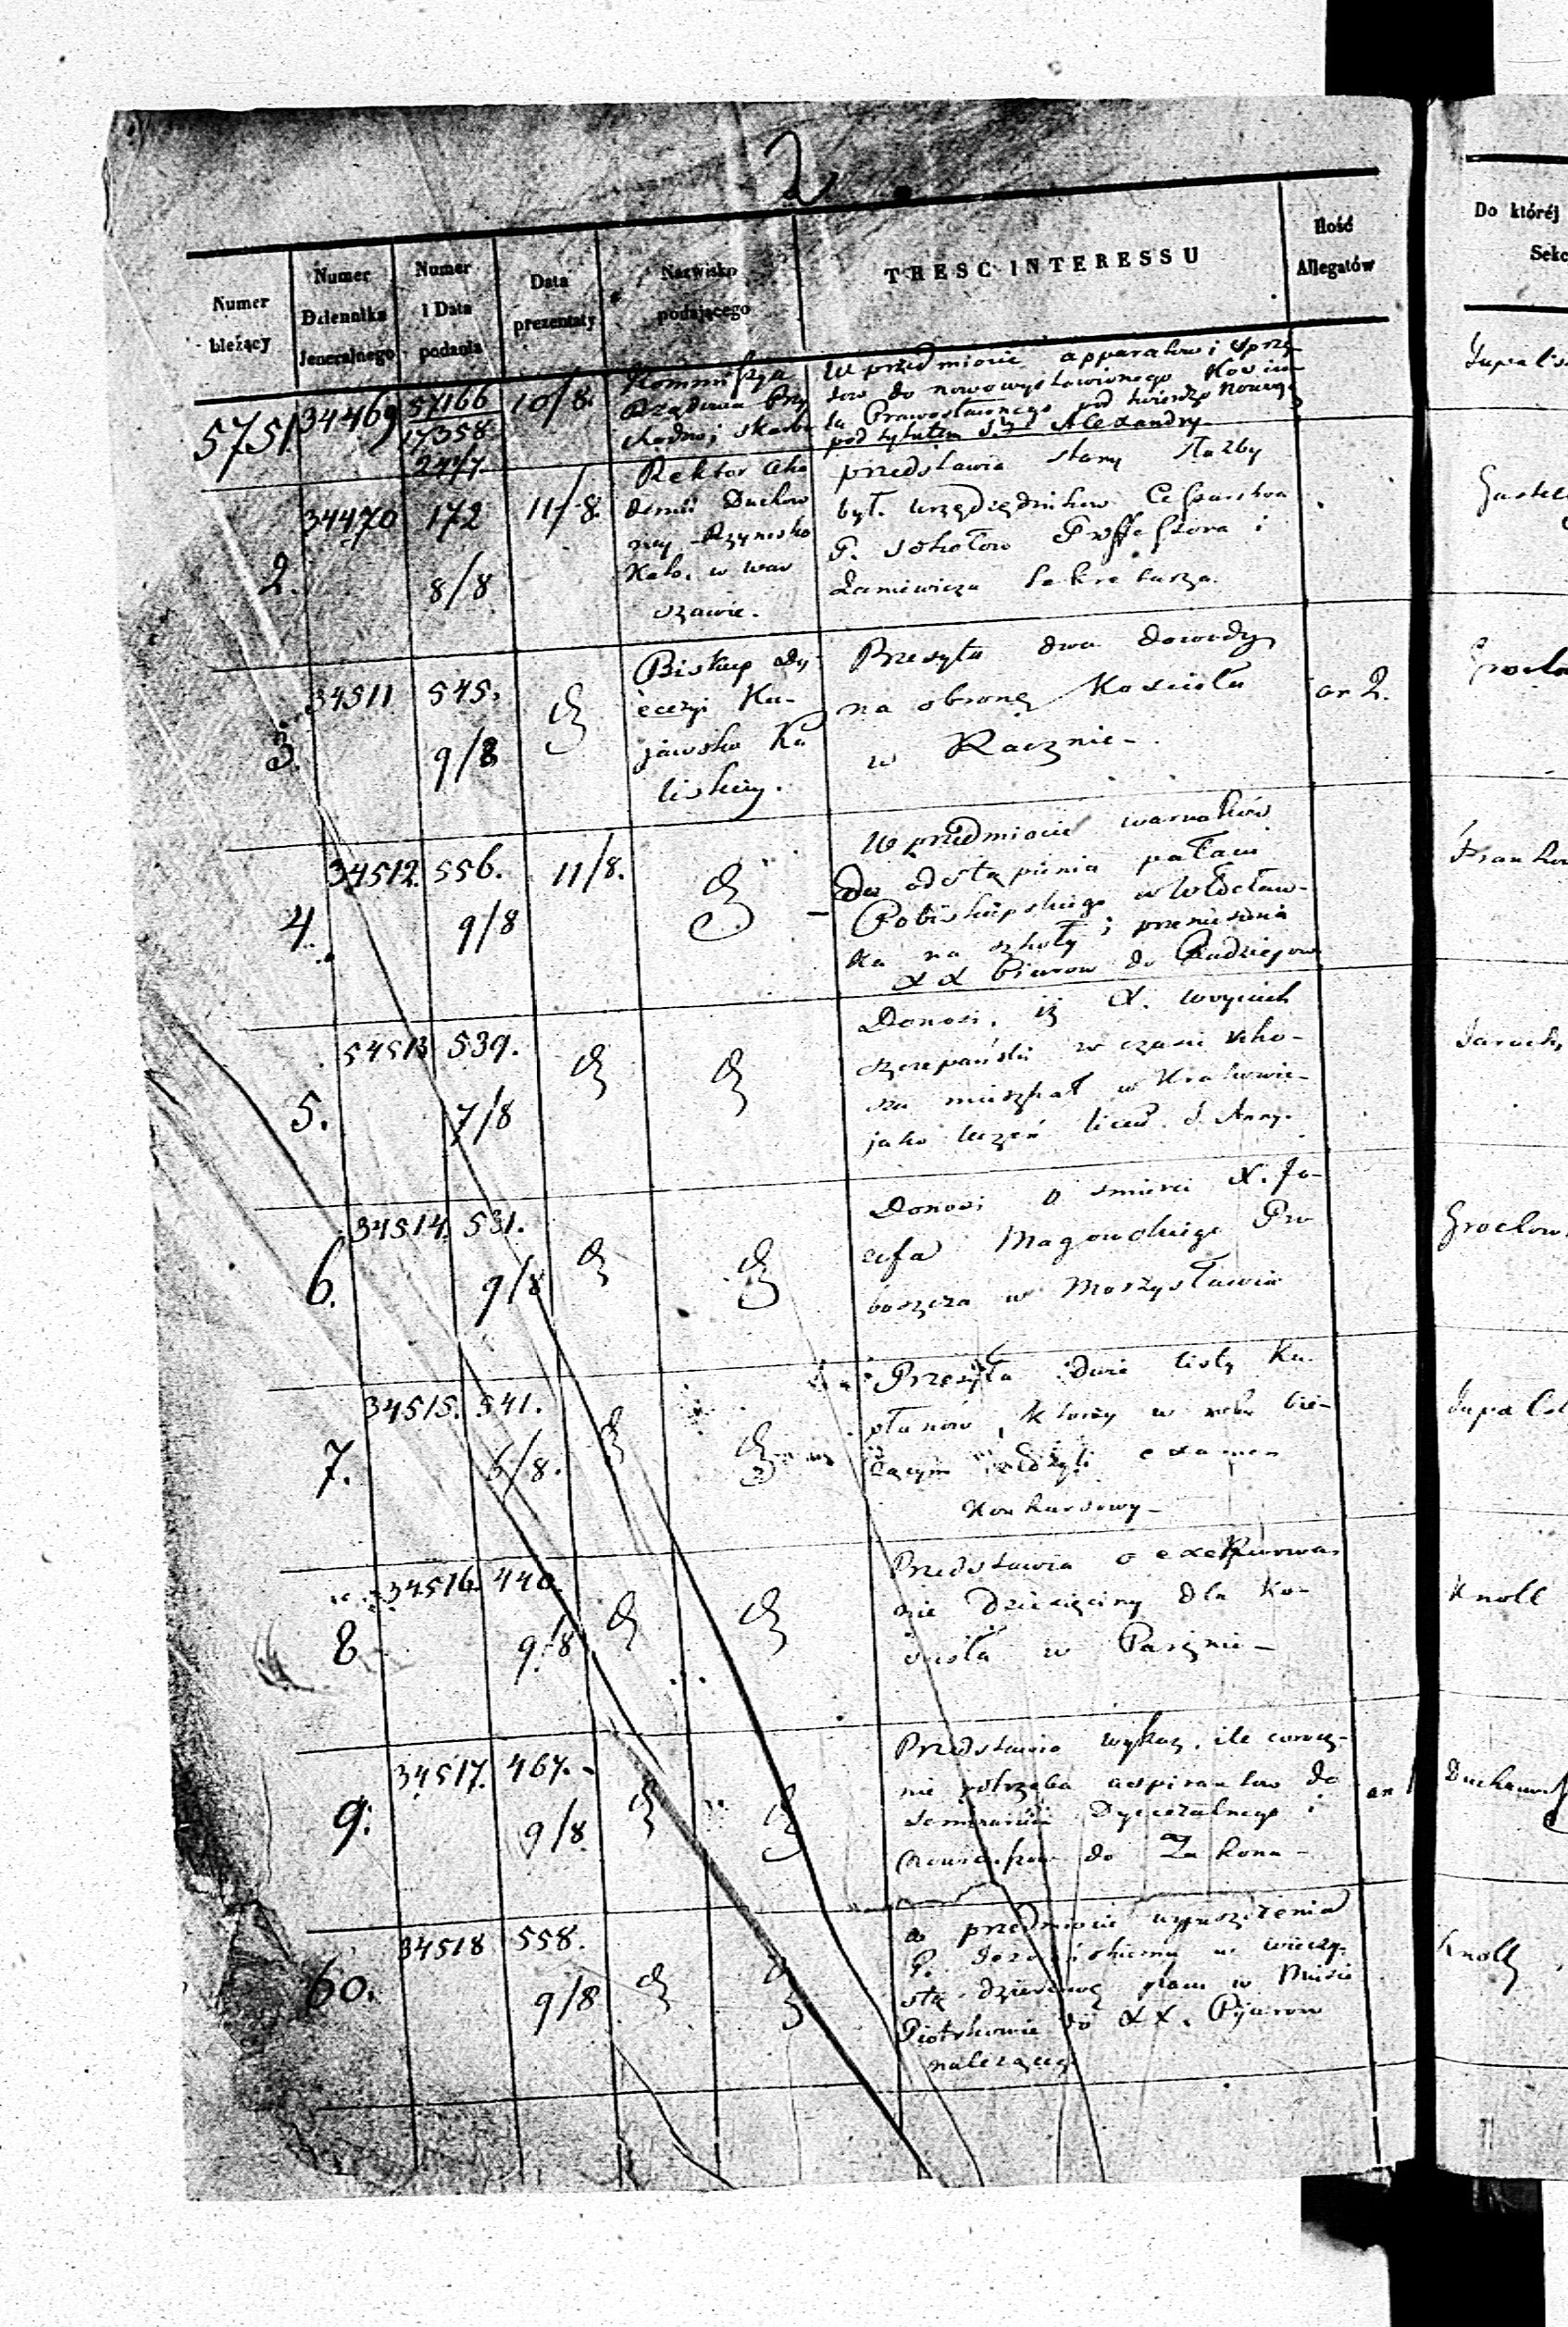 2
Numer bieżący
Numer Dziennika Jeneralnego
Numer i Data podania
Data prezentaty
Nazwisko podającego
TRESC INTERESSU
Ilość Allegatów
Do której
Sekc
5751
34469
57166
17358
24/7
10/8.
Kommissya
Rządowa Przy
chodów i Skarbu
W przedmiocie apparatów i sprzę-
tów do nowowystawionego Kościo-
ła Prawosławnego pod twierdzą Nowey
pod tytułem S. Alexandry
2.
34470
172
8/8
11/8.
Rektor Aka
demii Duchow
ney Rzymsko
Kato. w War
szawie.
przedstawia stany służby
był. Cesarstwa
P. Sokołow Proffessora i
Sekretarza.
3.
34511
545.
9/8
Biskup Dy-
ecezyi Ku-
jawsko Ka
liskiey.
Przesyła dwa dowody
na obronę Kościoła
w
an 2.
4.
34512.
556.
9/8
11/8.
W przedmiocie warunków
do odstąpienia pałacu
Pobiskupskiego w Włocław-
ku na szkoły i przeniesienia
XX Pijarow do Radziejowa
5.
34513
539.
7/8
Donosi, iż X. Woyciech
Szczepański w czasie
mieszkał w Krakowie
jako uczeń Liceum S. Anny.
6.
34514.
531.
9/8
Donosi o śmierci X. Jó-
zefa Pro
boszcza w Morzysławiu
Grochow
7.
34515.
541.
6/8.
Przesyła dwie listy Ka-
płanów, którzy w roku bie-
żącym złożyli examen
Konkursowy
8
34516.
440.
9/8
Przedstawia o
nie dziesięciny dla Ko-
ścioła w
Knoll
9.
34517.
467.
9/8
Przedstawia wykaz, ile corocz-
nie potrzeba aspirantów do
Seminarium Dyecezalnego i
do Zakonu
an 1
60.
34518
558.
9/8
w przedmiocie wypuszczenia
P. w wieczy-
stą dzierżawę placu w Mieście
Piotrkowie do XX. Pijarow
należącego
Knoll